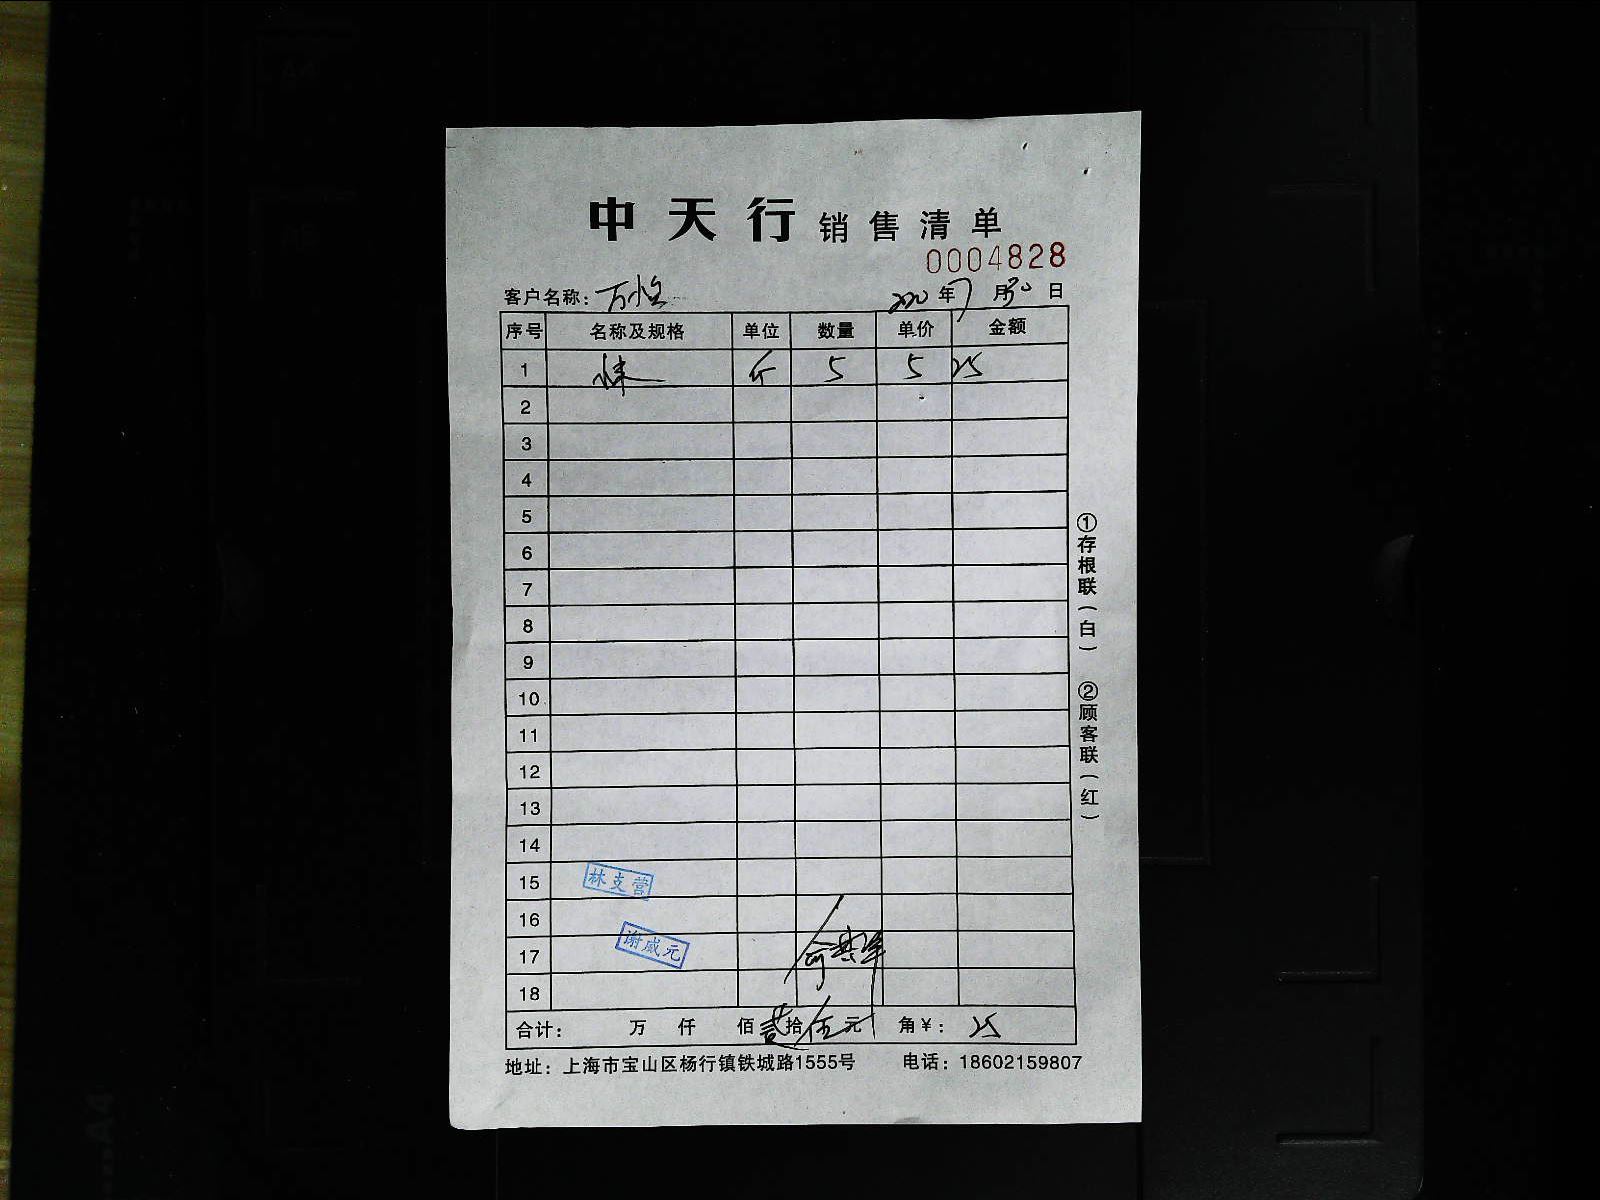 中天行 销售清单
0004828
客户名称：万恒 2020年7月30日
序号 名称及规格 单位 数量 单价 金额
1 斤 5 5 25
2
3
4
5
6
7
8
9
10
11
12
13
14
15 林支营
16
17 谢威元
18
合计： 万 仟 佰贰拾伍元 角¥：25
地址：上海市宝山区杨行镇铁城路1555号 电话：18602159807
①存根联（白）
②顾客联（红）